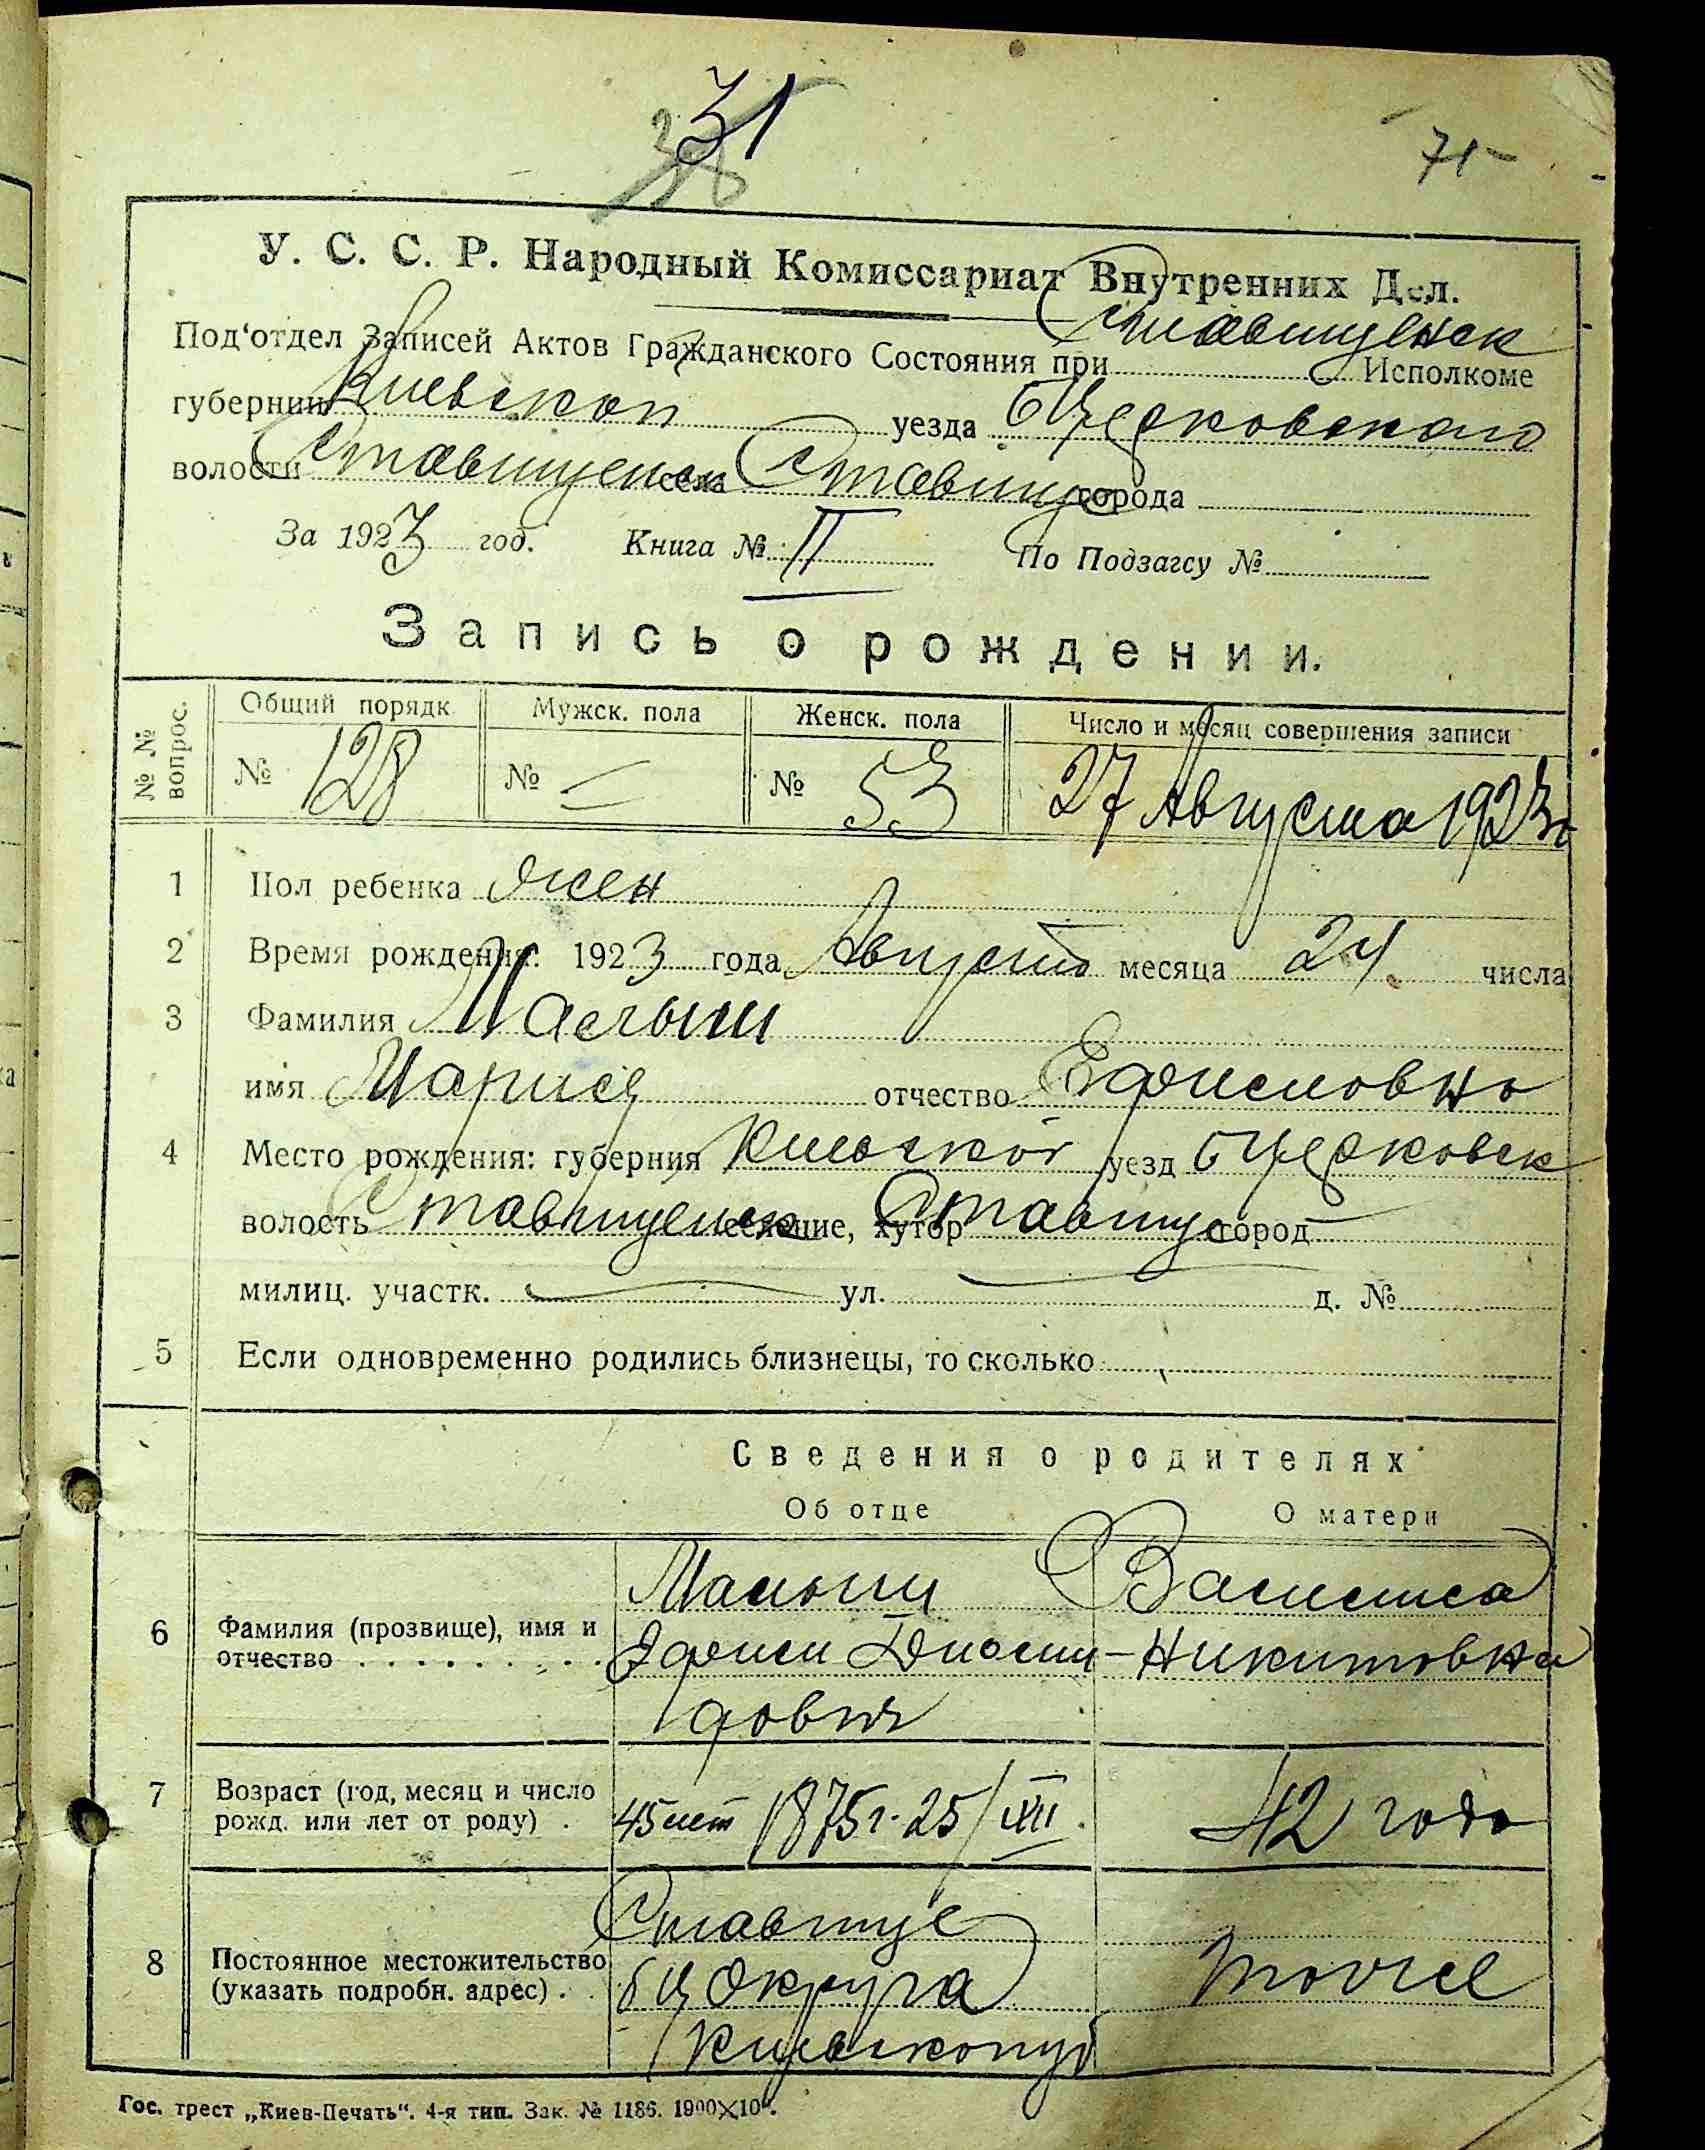 31
71
У. С. С. Р. Народный Комиссариат Внутренних Дел.
Под'отдел Записей Актов Гражданского Состояния при Ставищенск Исполкоме
губернии Киевской уезда БЦерковского
волости Ставищенск села Ставище города
За 1923 год. Книга № II По Подзагсу №
Запись о рождении.
№ № вопрос. Общий порядк. Мужск. пола Женск. пола Число и месяц совершения записи
№ 128 № — № 53 27 Августа 1923 г
1 Пол ребенка жен
2 Время рождения: 1923 года Августа месяца 24 числа
3 Фамилия Малыш
имя Мария отчество Ефимовна
4 Место рождения: губерния Киевской уезд БЦерковск
волость Ставищенск селение, хутор Ставище город —
милиц. участк. — ул. — д. №
5 Если одновременно родились близнецы, то сколько
Сведения о родителях
Об отце О матери
6 Фамилия (прозвище), имя и отчество Малыш Василиса
Ефим Никитовна
фович
7 Возраст (год, месяц и число рожд. или лет от роду) 45 лет 1875 г. 25/XII 42 года
8 Постоянное местожительство (указать подробн. адрес) Ставище тоже
БЦ Округа
Киевской губ
Гос. трест „Киев-Печать“. 4-я тип. Зак. № 1186. 1900×10.